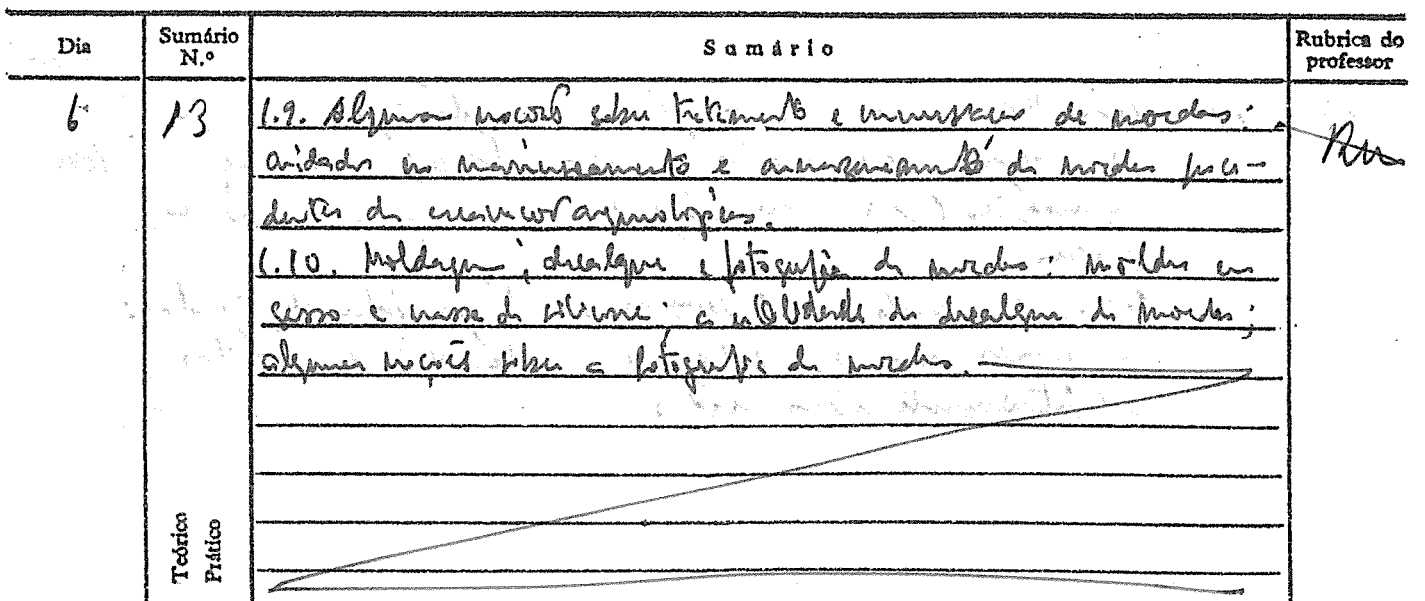 Dia
Sumário N.º
Sumário
Rubrica do professor
6
13
1.9. Algumas noções sobre tratamento e de moedas:
cuidados no manuseamento e armazenamento de moedas proce-
dentes de arqueológicas.
1.10. Moldagem, decalque e fotografia de moedas: moldes em
gesso e massa de silicone; a utilidade do decalque de moedas;
algumas noções sobre a fotografia de moedas.
Teórico
Prático